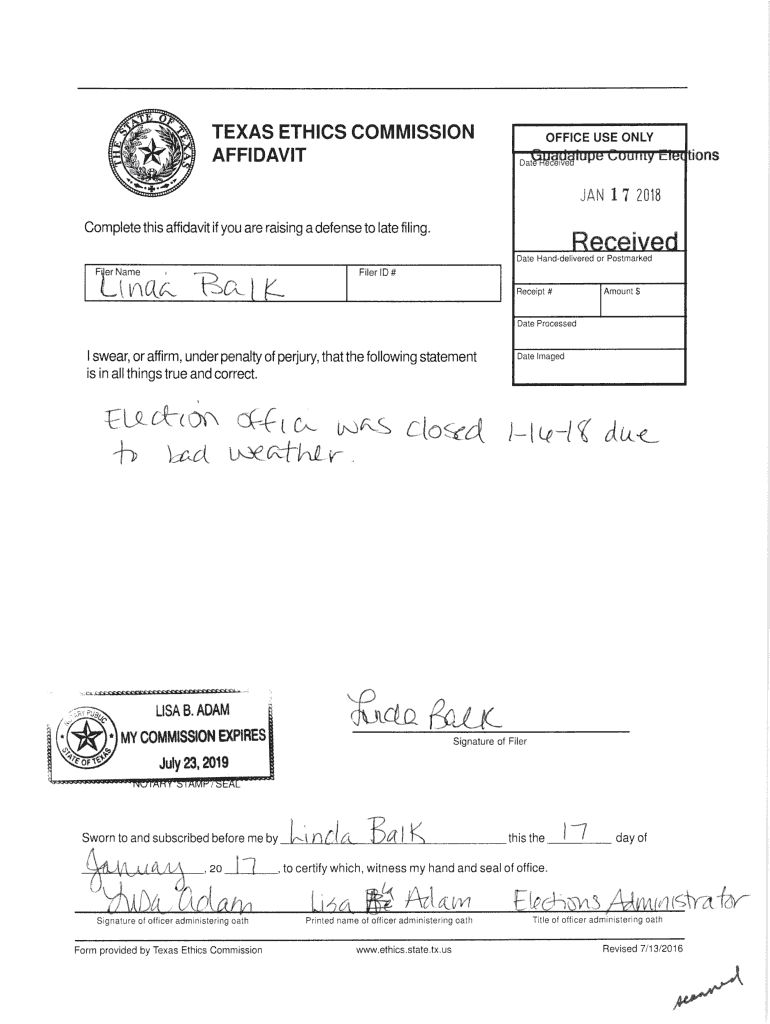 THE STATE OF TEXAS
TEXAS ETHICS COMMISSION
AFFIDAVIT
OFFICE USE ONLY
Date Received
Guadalupe County Elections
JAN 17 2018
Received
Complete this affidavit if you are raising a defense to late filing.
Date Hand-delivered or Postmarked
Filer Name
Linda Balk
Filer ID #
Receipt #
Amount $
Date Processed
I swear, or affirm, under penalty of perjury, that the following statement
is in all things true and correct.
Date Imaged
Election office was closed 1-16-18 due
to bad weather.
NOTARY PUBLIC
STATE OF TEXAS
LISA B. ADAM
MY COMMISSION EXPIRES
July 23, 2019
NOTARY STAMP / SEAL
Linda Balk
Signature of Filer
Sworn to and subscribed before me by Linda Balk this the 17 day of
January, 20 17, to certify which, witness my hand and seal of office.
Lisa Adam Lisa B Adam Elections Administrator
Signature of officer administering oath Printed name of officer administering oath Title of officer administering oath
Form provided by Texas Ethics Commission www.ethics.state.tx.us Revised 7/13/2016
scanned